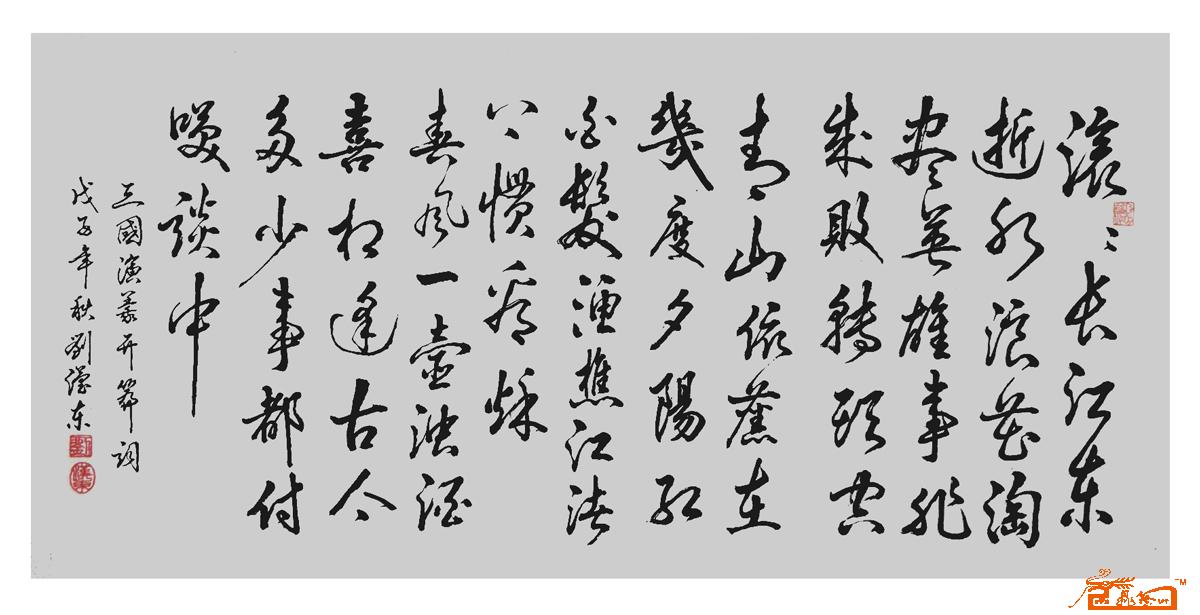 滚〻长江东
逝水浪花淘
尽英雄事非
成败转头空
青山依舊在
幾度夕陽红
白髮渔樵江渚
上惯看秋
春风一壶浊酒
喜相逢古今
多少事都付
笑谈中
三國演義开篇词
戊子年秋劉漢东
劉
漢東